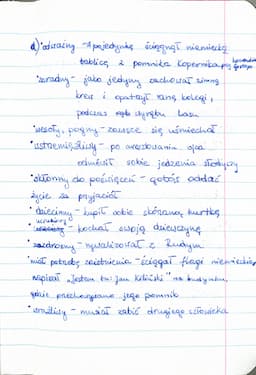 d) • odważny - w pojedynkę ściągnął niemiecką
tablicę z pomnika Kopernika
• zaradny - jako jedyny zachował zimną
krew i opatrzył ranę kolegi,
podczas
• wesoły, pogodny - zawsze się uśmiechał
• wstrzemięźliwy - po aresztowaniu ojca
odmówił sobie jedzenia słodyczy
• skłonny do poświęceń - gotów oddać
życie za przyjaciół
• dziecinny - kupił sobie skórzaną kurtkę
• - kochał swoją dziewczynę
• zazdrosny - rywalizował z Rudym
• miał potrzebę zaistnienia - ściągał flagi niemieckie,
napisał "Jestem tu: Jan Kiliński" na budynku,
gdzie przechowywano jego pomnik
• wrażliwy - musiał zabić drugiego człowieka